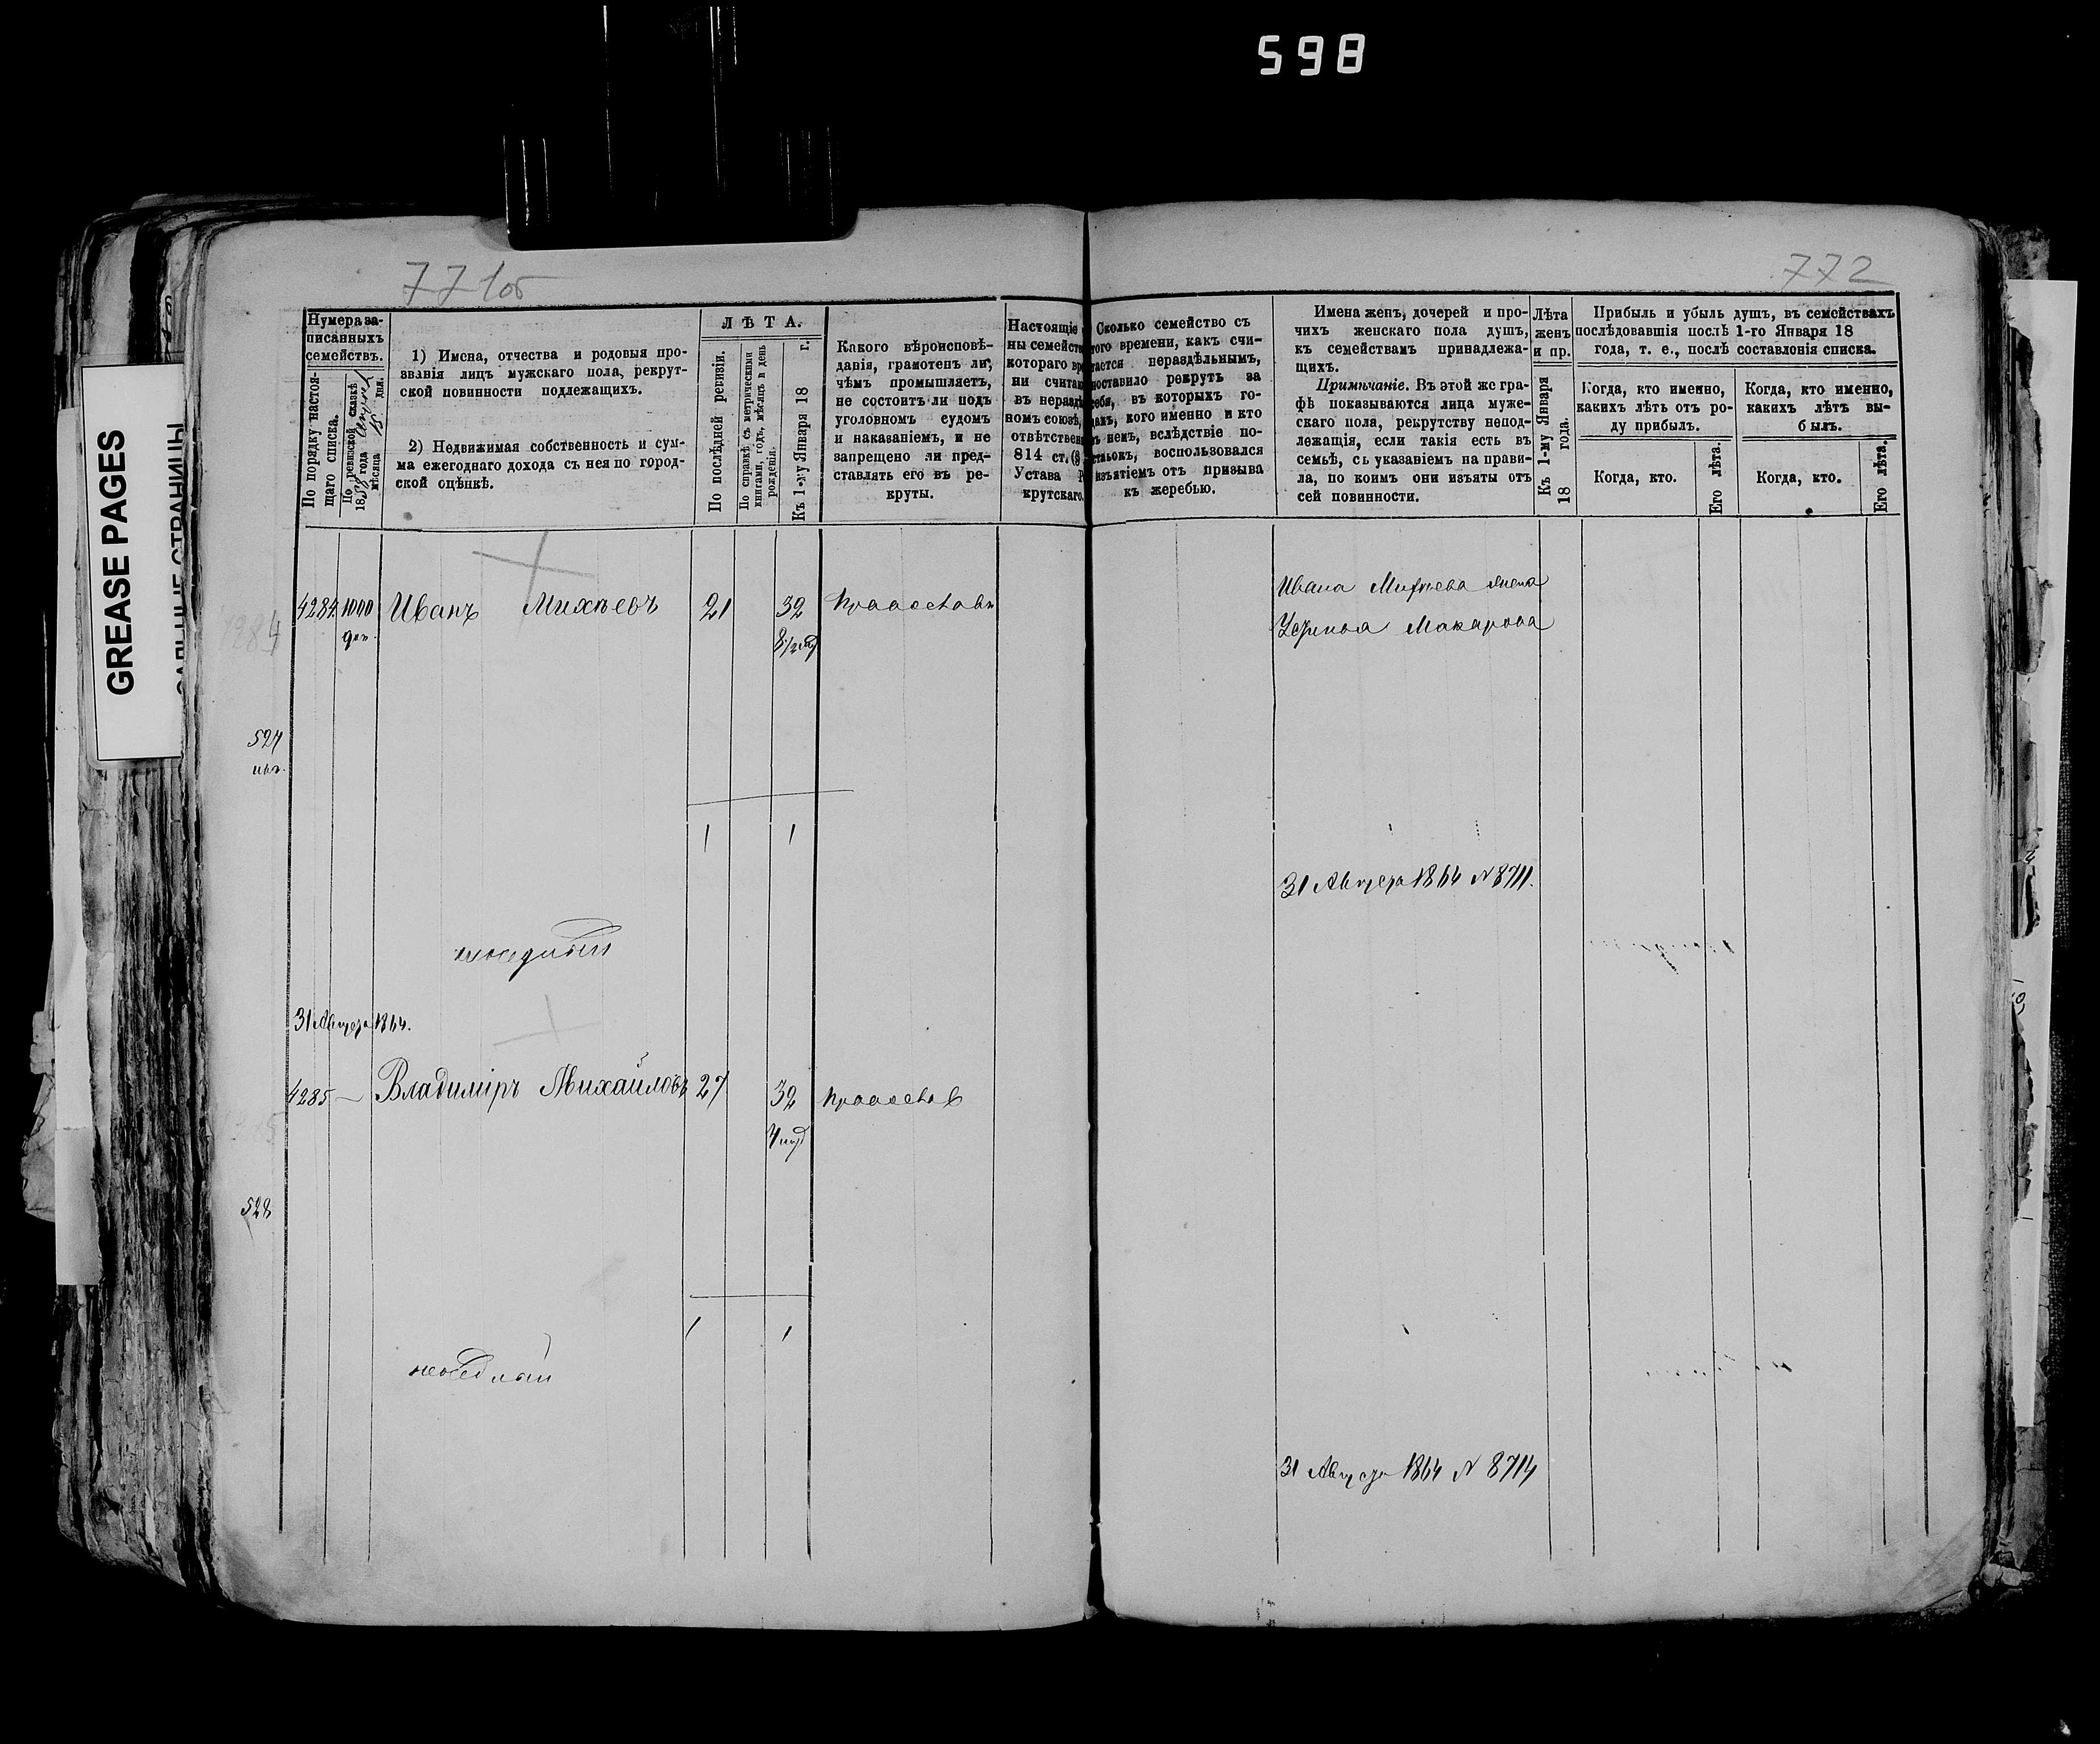 598
GREASE PAGES
771об
772
Нумера за-
писанныхъ
семействъ.
По порядку настоя-
щаго списка.
По ревизской сказкѣ
18 года
мѣсяца 15 дня.
1) Имена, отчества и родовыя про-
званія лицъ мужскаго пола, рекрут-
ской повинности подлежащихъ.
2) Недвижимая собственность и сум-
ма ежегоднаго дохода съ нея по город-
ской оцѣнкѣ.
ЛѢТА.
По послѣдней ревизіи.
По справкѣ съ метрическими
книгами, годъ, мѣсяцъ и день
рожденія.
Къ 1-му Января 18 г.
Какого вѣроисповѣ-
данія, грамотенъ ли,
чѣмъ промышляетъ,
не состоитъ ли подъ
уголовномъ судомъ
и наказаніемъ, и не
запрещено ли пред-
ставлять его въ ре-
круты.
Настоящіе
ны семейств
котораго вр
ни счита
въ нераздѣ
номъ союзѣ,
отвѣтствен
814 ст. (8
Устава Р
крутскаго.
Сколько семейство съ
того времени, какъ счи-
тается нераздѣльнымъ,
поставило рекрутъ за
себя, въ которыхъ го-
дахъ, кого именно и кто
въ немъ, вслѣдствіе по-
стыокъ, воспользовался
изъятіемъ отъ призыва
къ жеребью.
Имена женъ, дочерей и про-
чихъ женскаго пола душъ,
къ семействамъ принадлежа-
щихъ.
Примѣчаніе. Въ этой же гра-
фѣ показываются лица муже-
скаго пола, рекрутству непод-
лежащія, если такія есть въ
семьѣ, съ указаніемъ на прави-
ла, по коимъ они изъяты отъ
сей повинности.
Лѣта
женъ
и пр.
Къ 1-му Января
18 года.
Прибыль и убыль душъ, въ семействахъ
послѣдовавшія послѣ 1-го Января 18
года, т. е., послѣ составленія списка.
Когда, кто именно,
какихъ лѣтъ отъ ро-
ду прибылъ.
Когда, кто именно,
какихъ лѣтъ вы-
былъ.
Когда, кто.
Его лѣта.
Когда, кто.
Его лѣта.
4284 1000 Иванъ Михѣевъ 21 32 Православн
доп. 8½ мѣ
Ивана Михѣева жена
Устинья Макарова
4284
527
1 1
31 Августа 1864 N 8711.
31 Августа 1864.
4285 — Владиміръ Михайловъ 27 32 Православ
4 мѣ
528
1 1
31 Августа 1864 N 8714